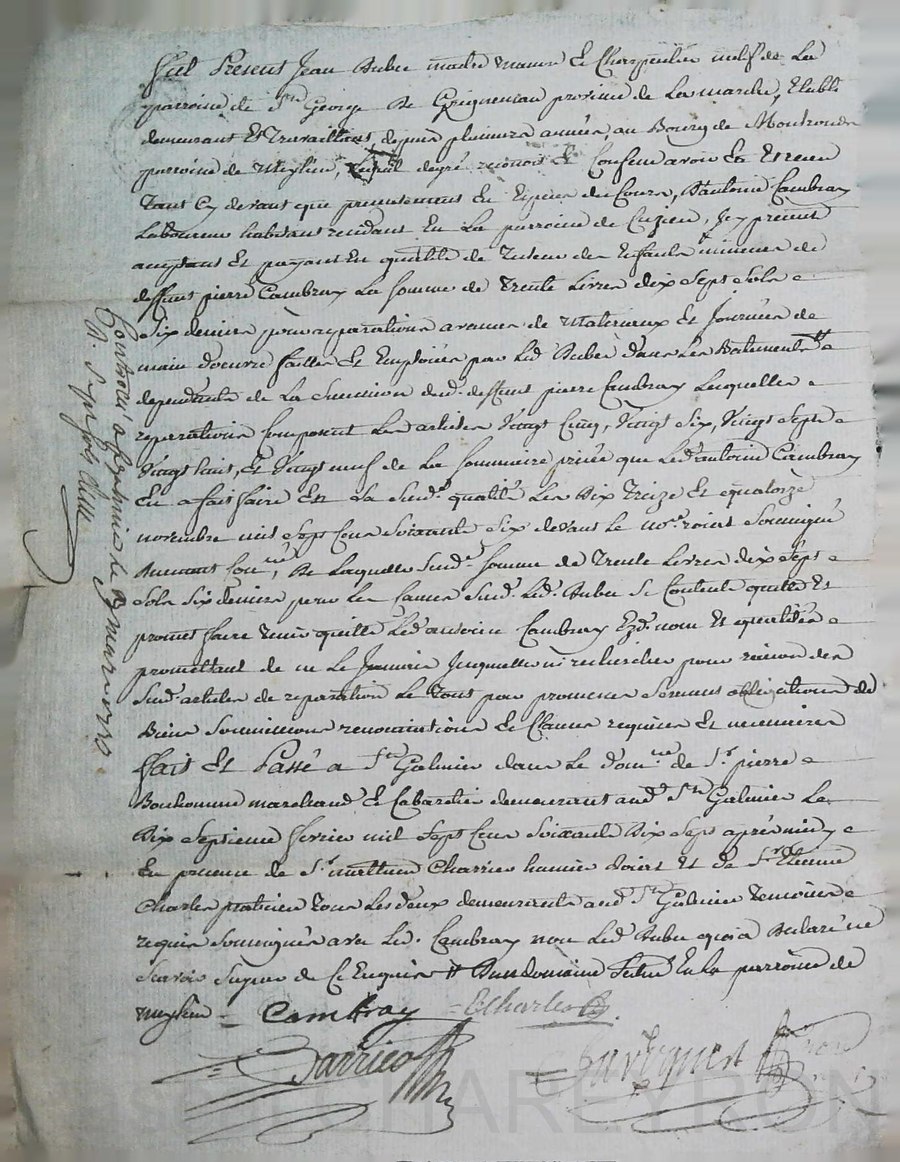 fut Présent Jean Aubu maitre masson Et Charpentier natif de La
parroisse de St George De province de La marche, Etabli
demeurant Et Travaillant depuis plusieurs années au Bourg de Montrond
parroisse de Meylieu, Lequel degré reconoit Et Confesse avoir Eu Et receu
Tant Cy devant que presentement En Espece de Cours, D'antoine Cambray
Laboureur habitant residant En La parroisse de Cuzieu, Icy présent
acceptant Et payant En qualité de Tuteur des Enfants mineurs de
deffunt pierre Cambray La somme de Trente Livres dix Sept Sols
Six deniers pour reparations avances de Materiaux Et Journées de
main d'oeuvre faittes Et Emploiées par Led. Aubu dans Les Batiments #
dependants de La Succession dud. deffunt pierre Cambray Lesquelles
reparations Composent Les articles Vingt Cinq, Vingt Six, Vingt Sept
Vingt huit, Et Vingt neuf de La Sommaire prisée que Led. antoine Cambray
En a fait faire En La Susd. qualité Les Dix Treize Et quatorze
novembre mil Sept Cent Soixante Six devant Le no.re roial Soussigné
De Laquelle Susd. Somme de Trente Livres dix Sept
Sols Six deniers pour Les Causes Susd. Led. Aubu Se Contente quitte Et
promet faire Tenir quitte Led. antoine Cambray Ezd. nom Et qualités
promettant de ne Le Jamais Inquietter ni rechercher pour raison des
Susd. articles de reparation Le Tout par promesses Serment obligations de
Biens Soumissions renonciations Et Clauses requises Et necessaires
fait Et Passé a St Galmier dans Le dom.le de Sr. pierre
Bonhomme marchand Et Cabaretier demeurant aud. St Galmier Le
Dix Septieme fevrier mil Sept Cent Soixante Dix Sept après midy
En presence de Sr. mathieu Charrier huissier roial Et de Sr Etienne
Charles praticien Tous Les deux demeurants aud. St Galmier Temoins
requis Soussignés avec Led. Cambray non Led. Aubu qui a declaré ne
Savoir Signer de Ce Enquis # Du domaine Situé En La parroisse de
Meylieu
Cambray
E Charles
Contrôlé a St Galmier le 3 mars 1777
R. Sept Sols
CHAREYRON